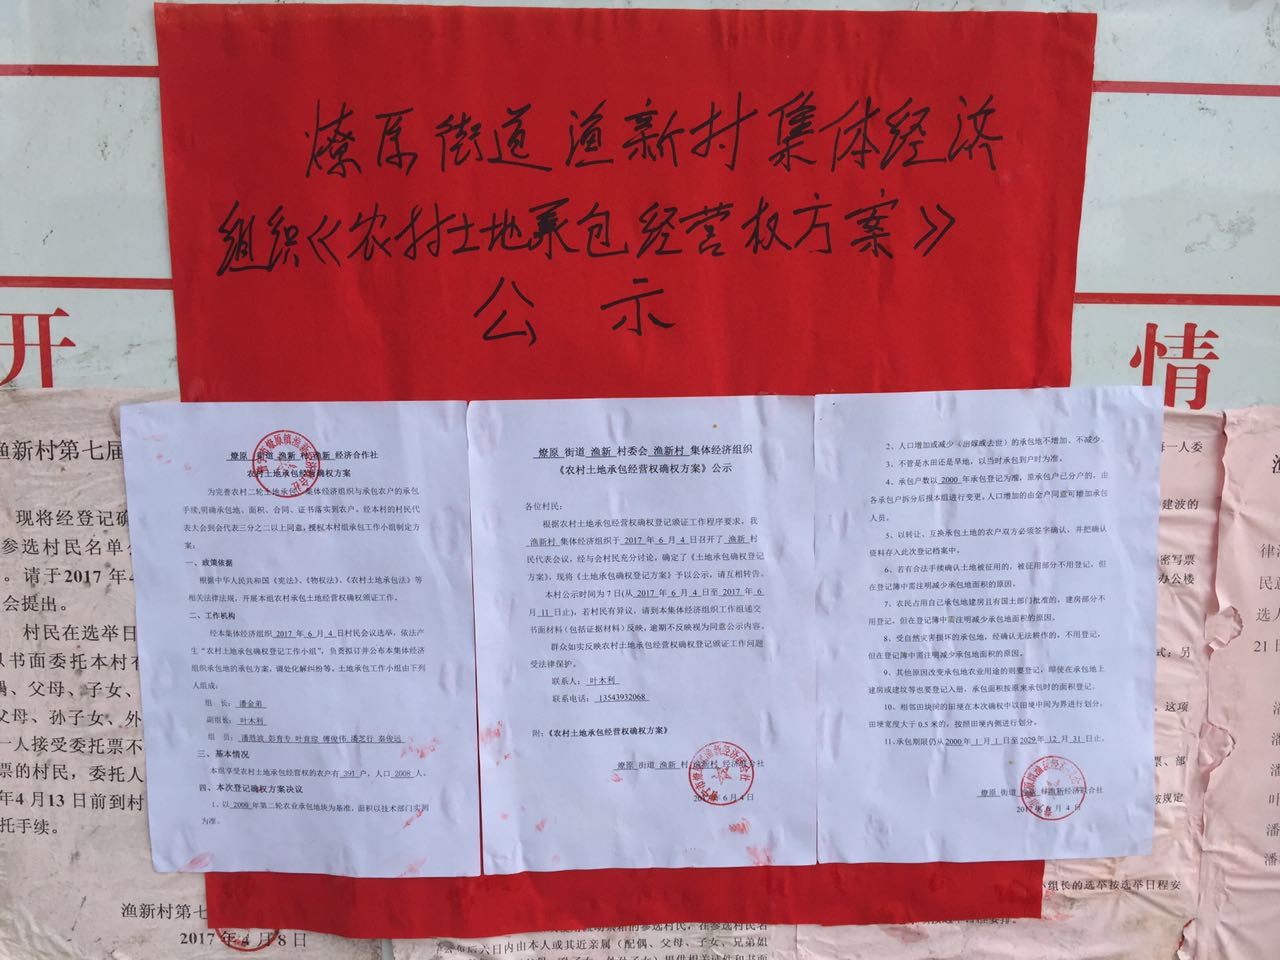 燎原街道渔新村集体经济
组织《农村土地承包经营权方案》
公示
开
情
燎原 街道 渔新 村渔新 经济合作社
农村土地承包经营权确权方案
为完善农村二轮土地承包，集体经济组织与承包农户的承包
手续，明确承包地、面积、合同、证书落实到农户。经本村的村民代
表大会到会代表三分之二以上同意，授权本村组承包工作小组制定方
案：
一、政策依据
根据中华人民共和国《宪法》、《物权法》、《农村土地承包法》等
相关法律法规，开展本组农村承包土地经营权确权颁证工作。
二、工作机构
经本集体经济组织 2017 年 6 月 4 日村民会议选举，依法产
生“农村土地承包经营权确权登记工作小组”，负责拟订并公布本集体经济
组织承包地的承包方案，调处化解纠纷等。土地承包工作小组由下列
人组成：
组 长：潘金弟
副组长：叶木利
三、基本情况
本组享受农村土地承包经营权的农户有 391 户，人口 2008 人。
四、本次登记确权方案决议
1、以 2000 年第二轮农业承包地块为基准，面积以技术部门实测
为准。
燎原 街道 渔新 村委会 渔新村 集体经济组织
《农村土地承包经营权确权方案》公示
各位村民：
根据农村土地承包经营权确权登记颁证工作程序要求，我
渔新村 集体经济组织于 2017 年 6 月 4 日召开了 渔新 村
民代表会议，经与会村民充分讨论，确定了《土地承包确权登记
方案》，现将《土地承包确权登记方案》予以公示，请互相转告。
本村公示时间为 7 日(从 2017 年 6 月 4 日至 2017 年 6
月 11 日止)，若村民有异议，请到本集体经济组织工作组递交
书面材料（包括证据材料）反映，逾期不反映视为同意公示内容。
群众如实反映农村土地承包经营权确权登记颁证工作问题
受法律保护。
联系人：叶木利
联系电话：13543932068
附：《农村土地承包经营权确权方案》
燎原 街道 渔新 村 渔新村 经济社
2017年 6 月 4 日
2、人口增加或减少（出嫁或去世）的承包地不增加、不减少。
3、不管是水田还是旱地，以当时承包到户时为准。
4、承包户数以 2000 年承包登记为准，原承包户已分户的，由
各承包户拆分后报本组进行变更，人口增加的由全户同意可增加承包
人员。
5、以转让、互换承包土地的农户双方必须签字确认，并把确认
资料存入此次登记档案中。
6、若有合法手续确认土地被征用的，被征用部分不用登记，但
在登记簿中需注明减少承包地面积的原因。
7、农民占用自己承包地建房且有国土部门批准的，建房部分不
用登记，但在登记簿中需注明减少承包地面积的原因。
8、受自然灾害损坏的承包地，经确认无法耕作的，不用登记，
但在登记簿中需注明减少承包地面积的原因。
9、其他原因改变承包地农业用途的则要登记，即使在承包地上
建房或建坟等也要登记入册，承包面积按原来承包时的面积登记。
10、相邻田块间的田埂在本次确权中以田埂中间为界进行划分，
田埂宽度大于 0.5 米的，按照田埂内侧进行划分。
11、承包期限仍从 2000 年 1 月 1 日至 2029 年 12 月 31 日止。
燎原 街道 渔新 村渔新经济联合社
2017年 6 月 4 日
渔新村第七届
现将经登记确
参选村民名单公
。请于2017 年4
会提出。
村民在选举日
以书面委托本村有
偶、父母、子女、
父母、孙子女、外
一人接受委托票不
票的村民，委托人
年4 月13 日前到村
托手续。
渔新村第七
2017 年 4 月 8 日
小组长的选举按选举日程安